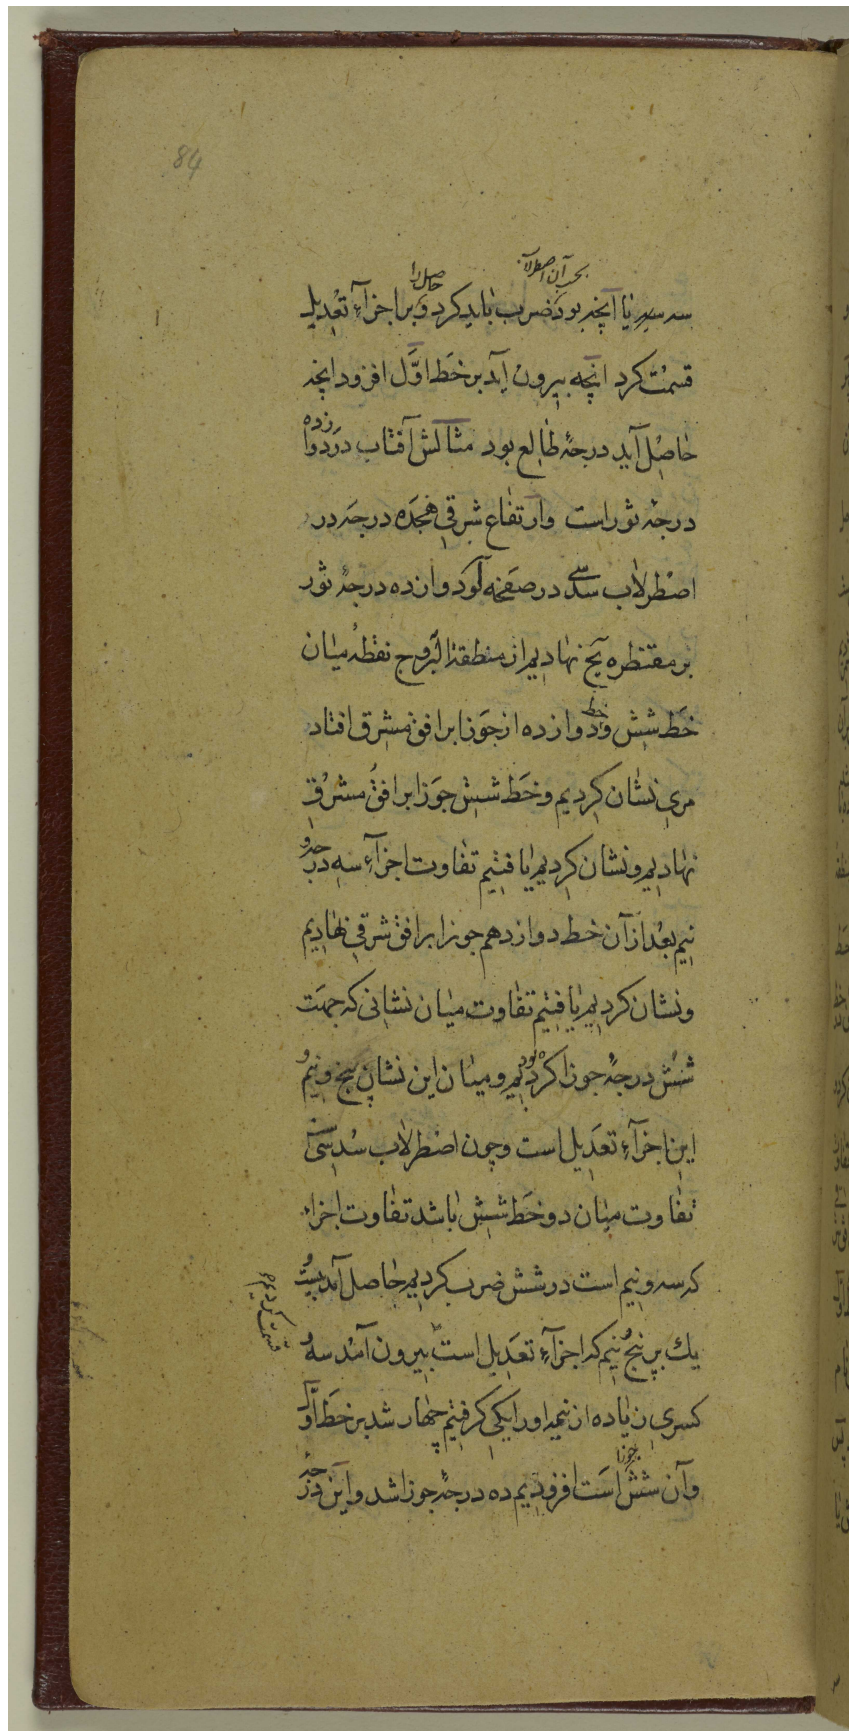 84
بحر آن اصطرلاب
حاصل را
سه سه یا آنچه بود ضرب باید کرد و بر اجزآءِ تعدیل
قسمت کرد آنچه بیرون آید بر خط اوّل افزود آنچه
حاصل آید درجهٔ طالع بود مثالش آفتاب در دوازده
درجهٔ ثور است و ارتفاع شرقی هجده درجه در
اصطرلاب سدسی در صفحه لو دوازده درجهٔ ثور
بر مقنطره یح نهادیم از منطقة البروج نقطهٔ میان
خط شش و خط دوازده از جوزا بر افق مشرق افتاد
مری نشان کردیم و خط شش جوزا بر افق مشرق
نهادیم و نشان کردیم یافتیم تفاوت اجزآءِ سه درجه و
نیم بعد از آن خط دوازدهم جوزا بر افق شرقی نهادیم
و نشان کردیم یافتیم تفاوت میان نشانی که جهت
شش درجهٔ جوزا کرده بودیم و میان این نشان پنج و نیم و
این اجزآءِ تعدیل است و چون اصطرلاب سدسی است
تفاوت میان دو خط شش باشد تفاوت اجزاء
که سه و نیم است در شش ضرب کردیم حاصل آمد بیست و
یک بر پنج و نیم که اجزآءِ تعدیل است بیرون آمد سه و
قسمت کردیم
کسری زیاده از نیم او را یکی گرفتیم چهار شد بر خط اوّل
و آن شش جوزا است افزودیم ده درجهٔ جوزا شد و این درجهٔ